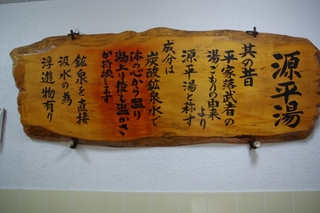 源平湯
其の昔
平家落武者の
湯ごもりの由来
より
源平湯と称す
成分は
炭酸鉱泉水で
体の心から温り
湯上り後も温かさ
が持续します
鉱泉を直接
汲水の為
浮遊物有り